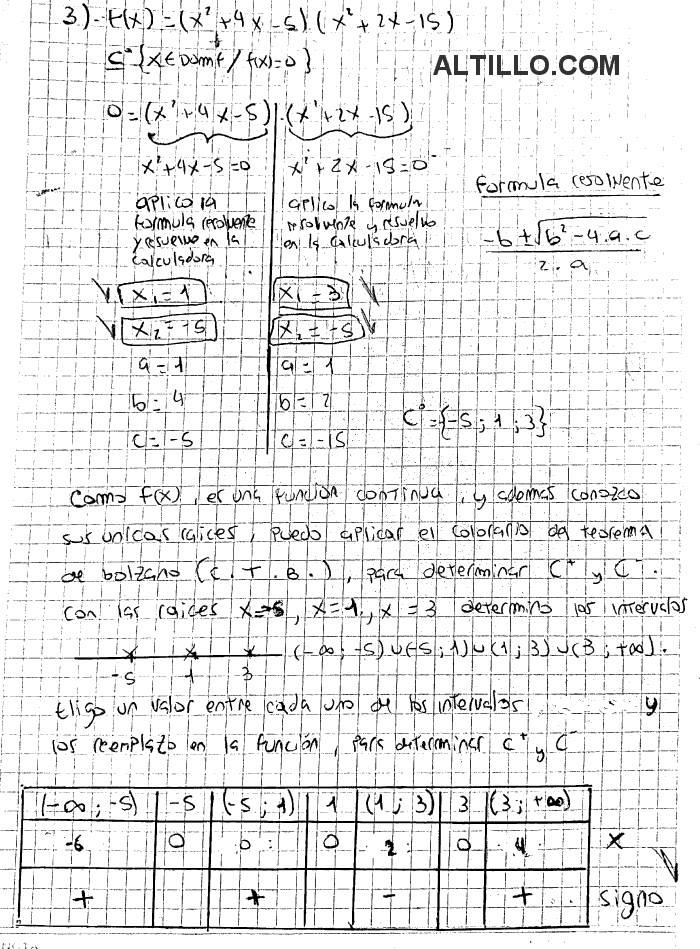 3)- f(x) = (x² + 4x - 5) (x² + 2x - 15)
C° {x ∈ Dom f / f(x) = 0}
ALTILLO.COM
0 = (x² + 4x - 5) . (x² + 2x - 15)
x² + 4x - 5 = 0
aplico la
formula resolvente
y resuelvo en la
calculadora
x₁ = 1
x₂ = -5
a = 1
b = 4
c = -5
x² + 2x - 15 = 0
aplico la formula
resolvente y resuelvo
en la calculadora
x₁ = 3
x₂ = -5
a = 1
b = 2
c = -15
formula resolvente
-b ± √b² - 4.a.c
2.a
C° = {-5 ; 1 ; 3}
Como f(x), es una función continua, y ademas conozco
sus unicas raices, puedo aplicar el colorario del teorema
de bolzano (C.T.B.), para determinar C⁺ y C⁻.
con las raices x=-5, x=1, x = 3 determino los intervalos
-5 1 3 (-∞ ; -5) ∪ (-5 ; 1) ∪ (1 ; 3) ∪ (3 ; +∞).
Eligo un valor entre cada uno de los intervalos y
los reemplazo en la función, para determinar C⁺ y C⁻
(-∞ ; -5) -5 (-5 ; 1) 1 (1 ; 3) 3 (3 ; +∞)
-6 0 0 0 2 0 4 x
+ + - + signo